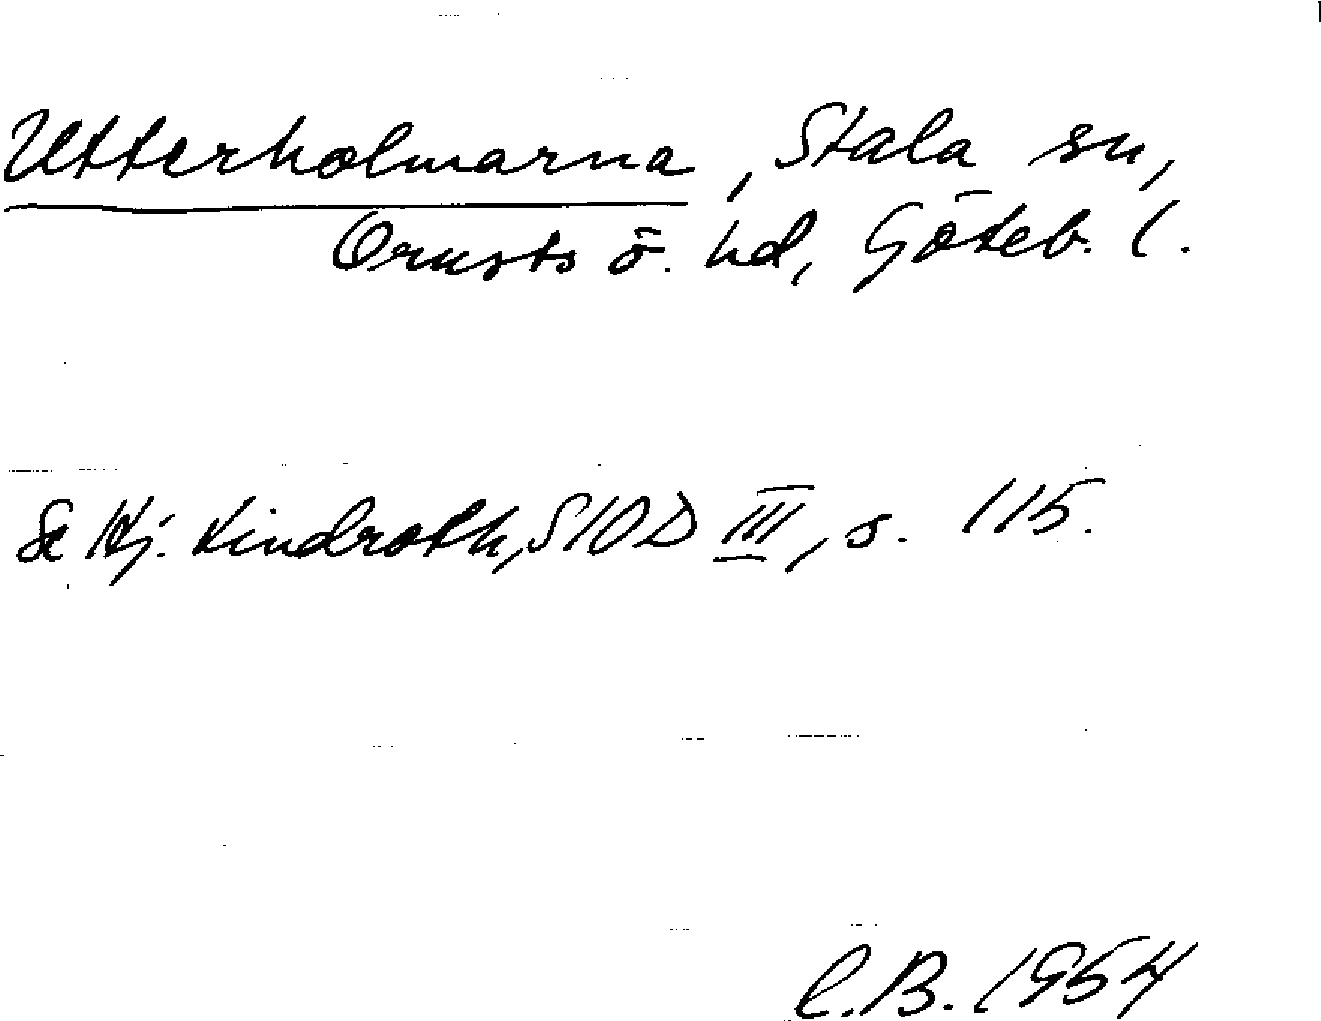 Utterholmarna, Stala sn,
Orusts ö. hd, Göteb. l.
Se Hj. Lindroth, SIOD III, s. 115.
C.B. 1954